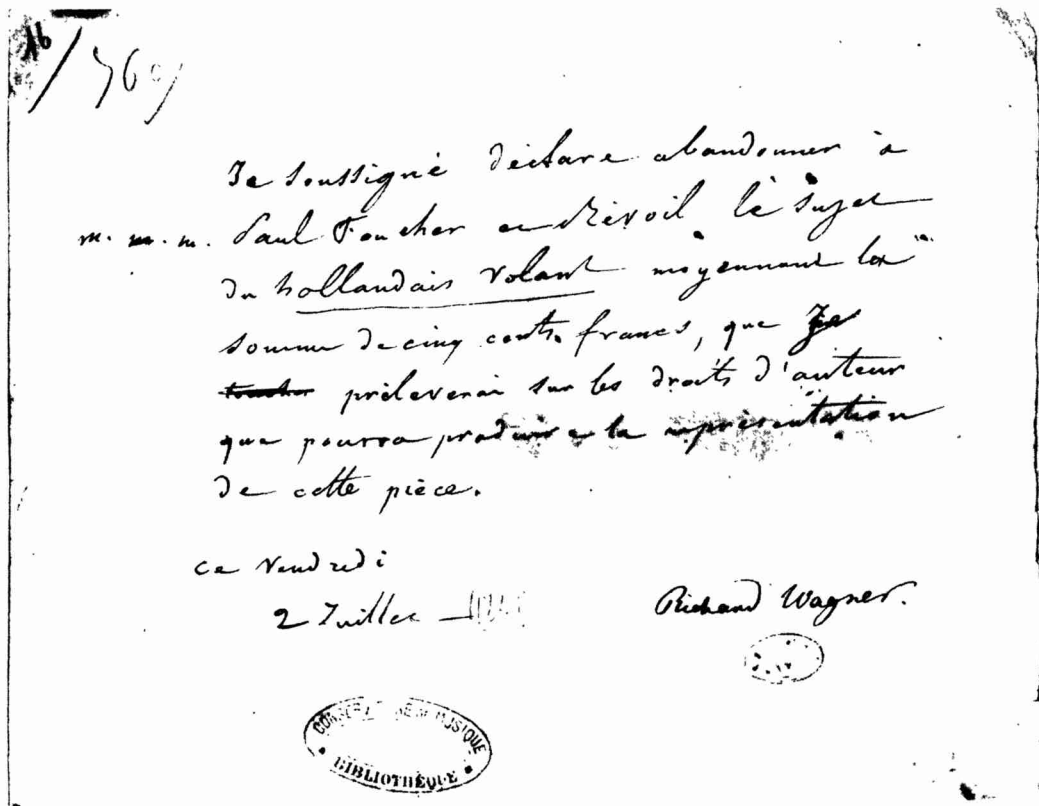 16
Je soussigné déclare abandonner à
m. m. m. Paul Foucher et Révoil le sujet
du hollandais volant moyennant la
somme de cinq cents francs, que je
toucher prélèverai sur les droits d'auteur
que pourra produire la représentation
de cette pièce.
ce Vendredi
2 Juillet
Richard Wagner.
BIBLIOTHÈQUE